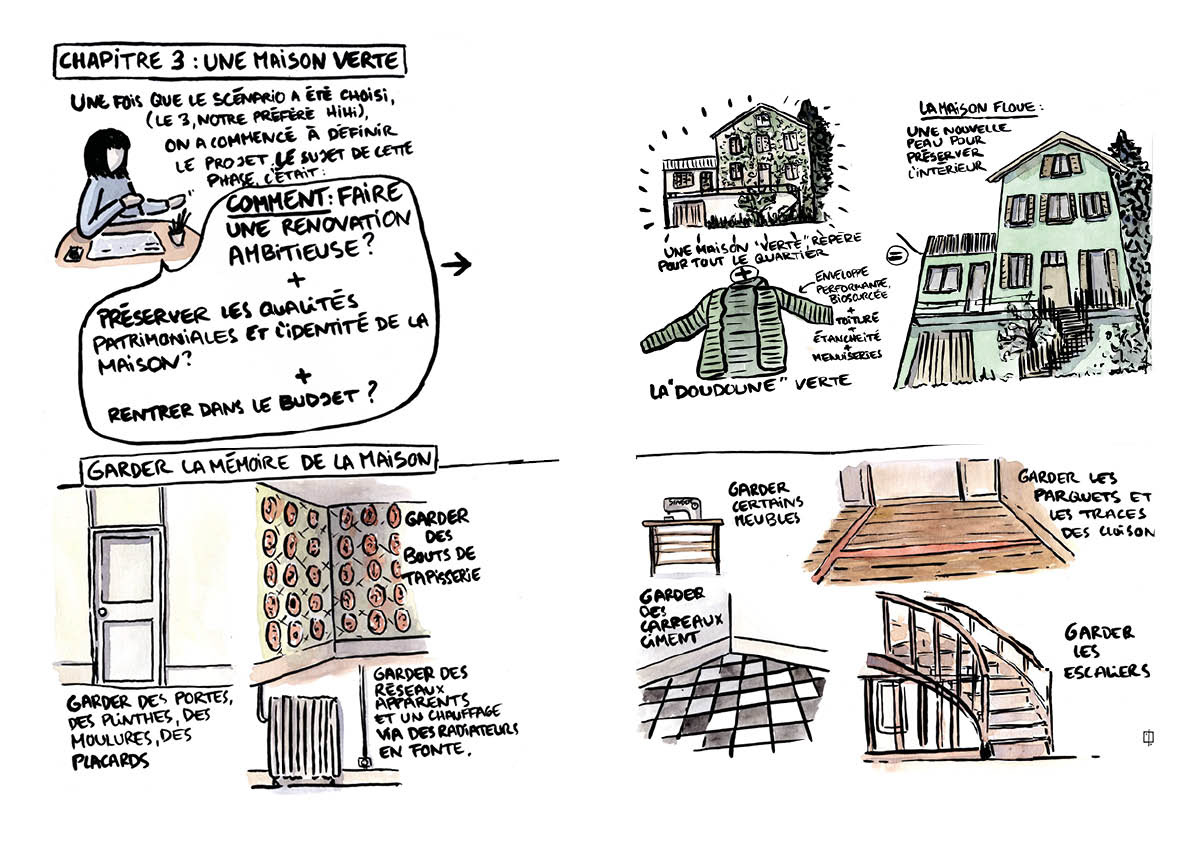 CHAPITRE 3 : UNE MAISON VERTE
UNE FOIS QUE LE SCÉNARIO A ÉTÉ CHOISI,
(LE 3, NOTRE PRÉFÉRÉ HIHI),
ON A COMMENCÉ À DÉFINIR
LE PROJET. LE SUJET DE CETTE
PHASE, C'ÉTAIT :
COMMENT : FAIRE
UNE RENOVATION
AMBITIEUSE ?
+
PRÉSERVER LES QUALITÉS
PATRIMONIALES ET L'IDENTITÉ DE LA
MAISON ?
+
RENTRER DANS LE BUDGET ?
UNE MAISON "VERTE", REPÈRE
POUR TOUT LE QUARTIER
+
ENVELOPPE
PERFORMANTE,
BIOSOURCÉE
+
TOITURE
+
ÉTANCHEITÉ
+
MENUISERIES
LA "DOUDOUNE" VERTE
=
LA MAISON FLOUE :
UNE NOUVELLE
PEAU POUR
PRÉSERVER
L'INTÉRIEUR
GARDER LA MÉMOIRE DE LA MAISON
GARDER DES PORTES,
DES PLINTHES, DES
MOULURES, DES
PLACARDS
GARDER
DES
BOUTS DE
TAPISSERIE
GARDER DES
RÉSEAUX
APPARENTS
ET UN CHAUFFAGE
VIA DES RADIATEURS
EN FONTE.
SINGER
GARDER
CERTAINS
MEUBLES
GARDER LES
PARQUETS ET
LES TRACES
DES CLOISON
GARDER
DES
CARREAUX
CIMENT
GARDER
LES
ESCALIERS